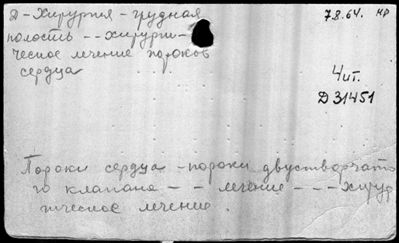 Д-Хирургия - грудная
полость - - хирурги-
ческое лечение пороков
сердца
7.8.64. нр
Чит.
Д31451
Пороки сердца - пороки двустворчато
го клапана - - лечение - - - хирур
гическое лечение.